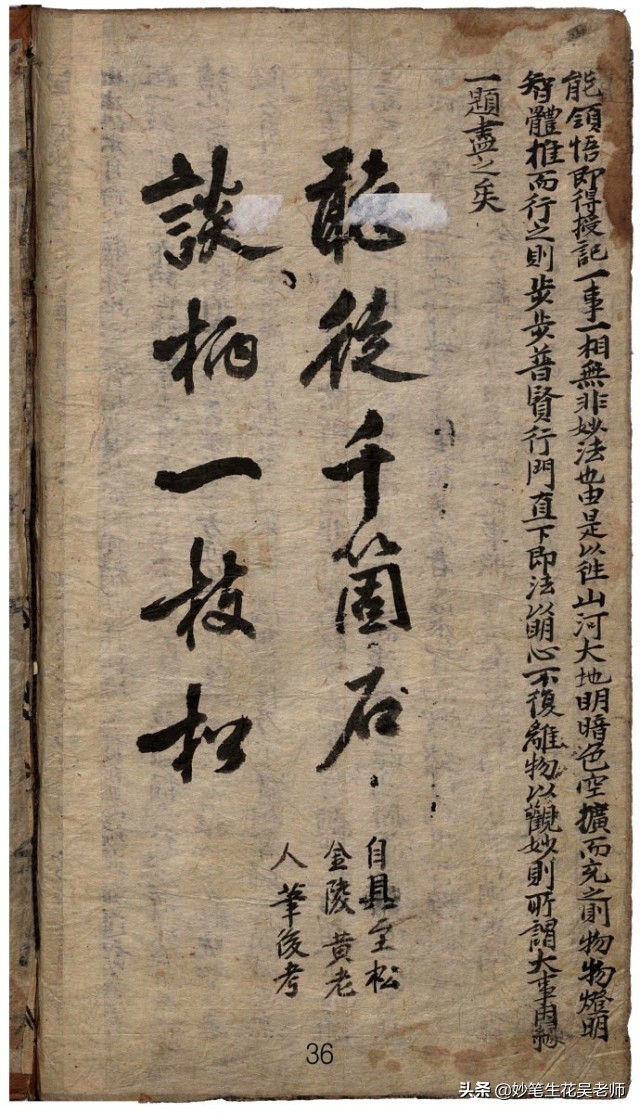 能領悟即得授記一事一相無非妙法也由是以往山河大地明暗色空擴而充之則物物燈明
智體推而行之則步步普賢行門直下即法以明心不復離物以觀妙則所謂大事因
一題盡之矣
聽從千箇石
談柄一枝松
自具至松
金陵黄老
人筆後考
36
头条 @妙笔生花吴老师